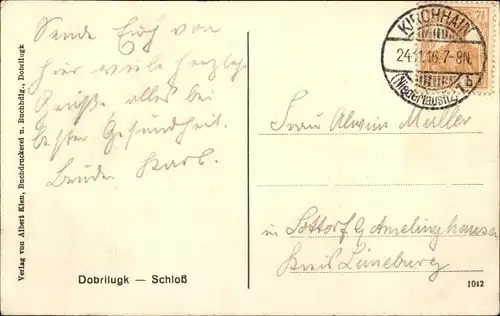 Sende Euch von
hier viele herzliche
Grüße alles bei
bester Gesundheit.
Bruder Karl.
Verlag von Albert Kien, Buchdruckerei u. Buchhdlg., Dobrilugk
Dobrilugk — Schloß
KIRCHHAIN
24.11.16. 7-8N.
(Niederlausitz)
7½
Frau Alwin Müller
in Sottorf b Amelinghausen
Kreis Lüneburg
1042